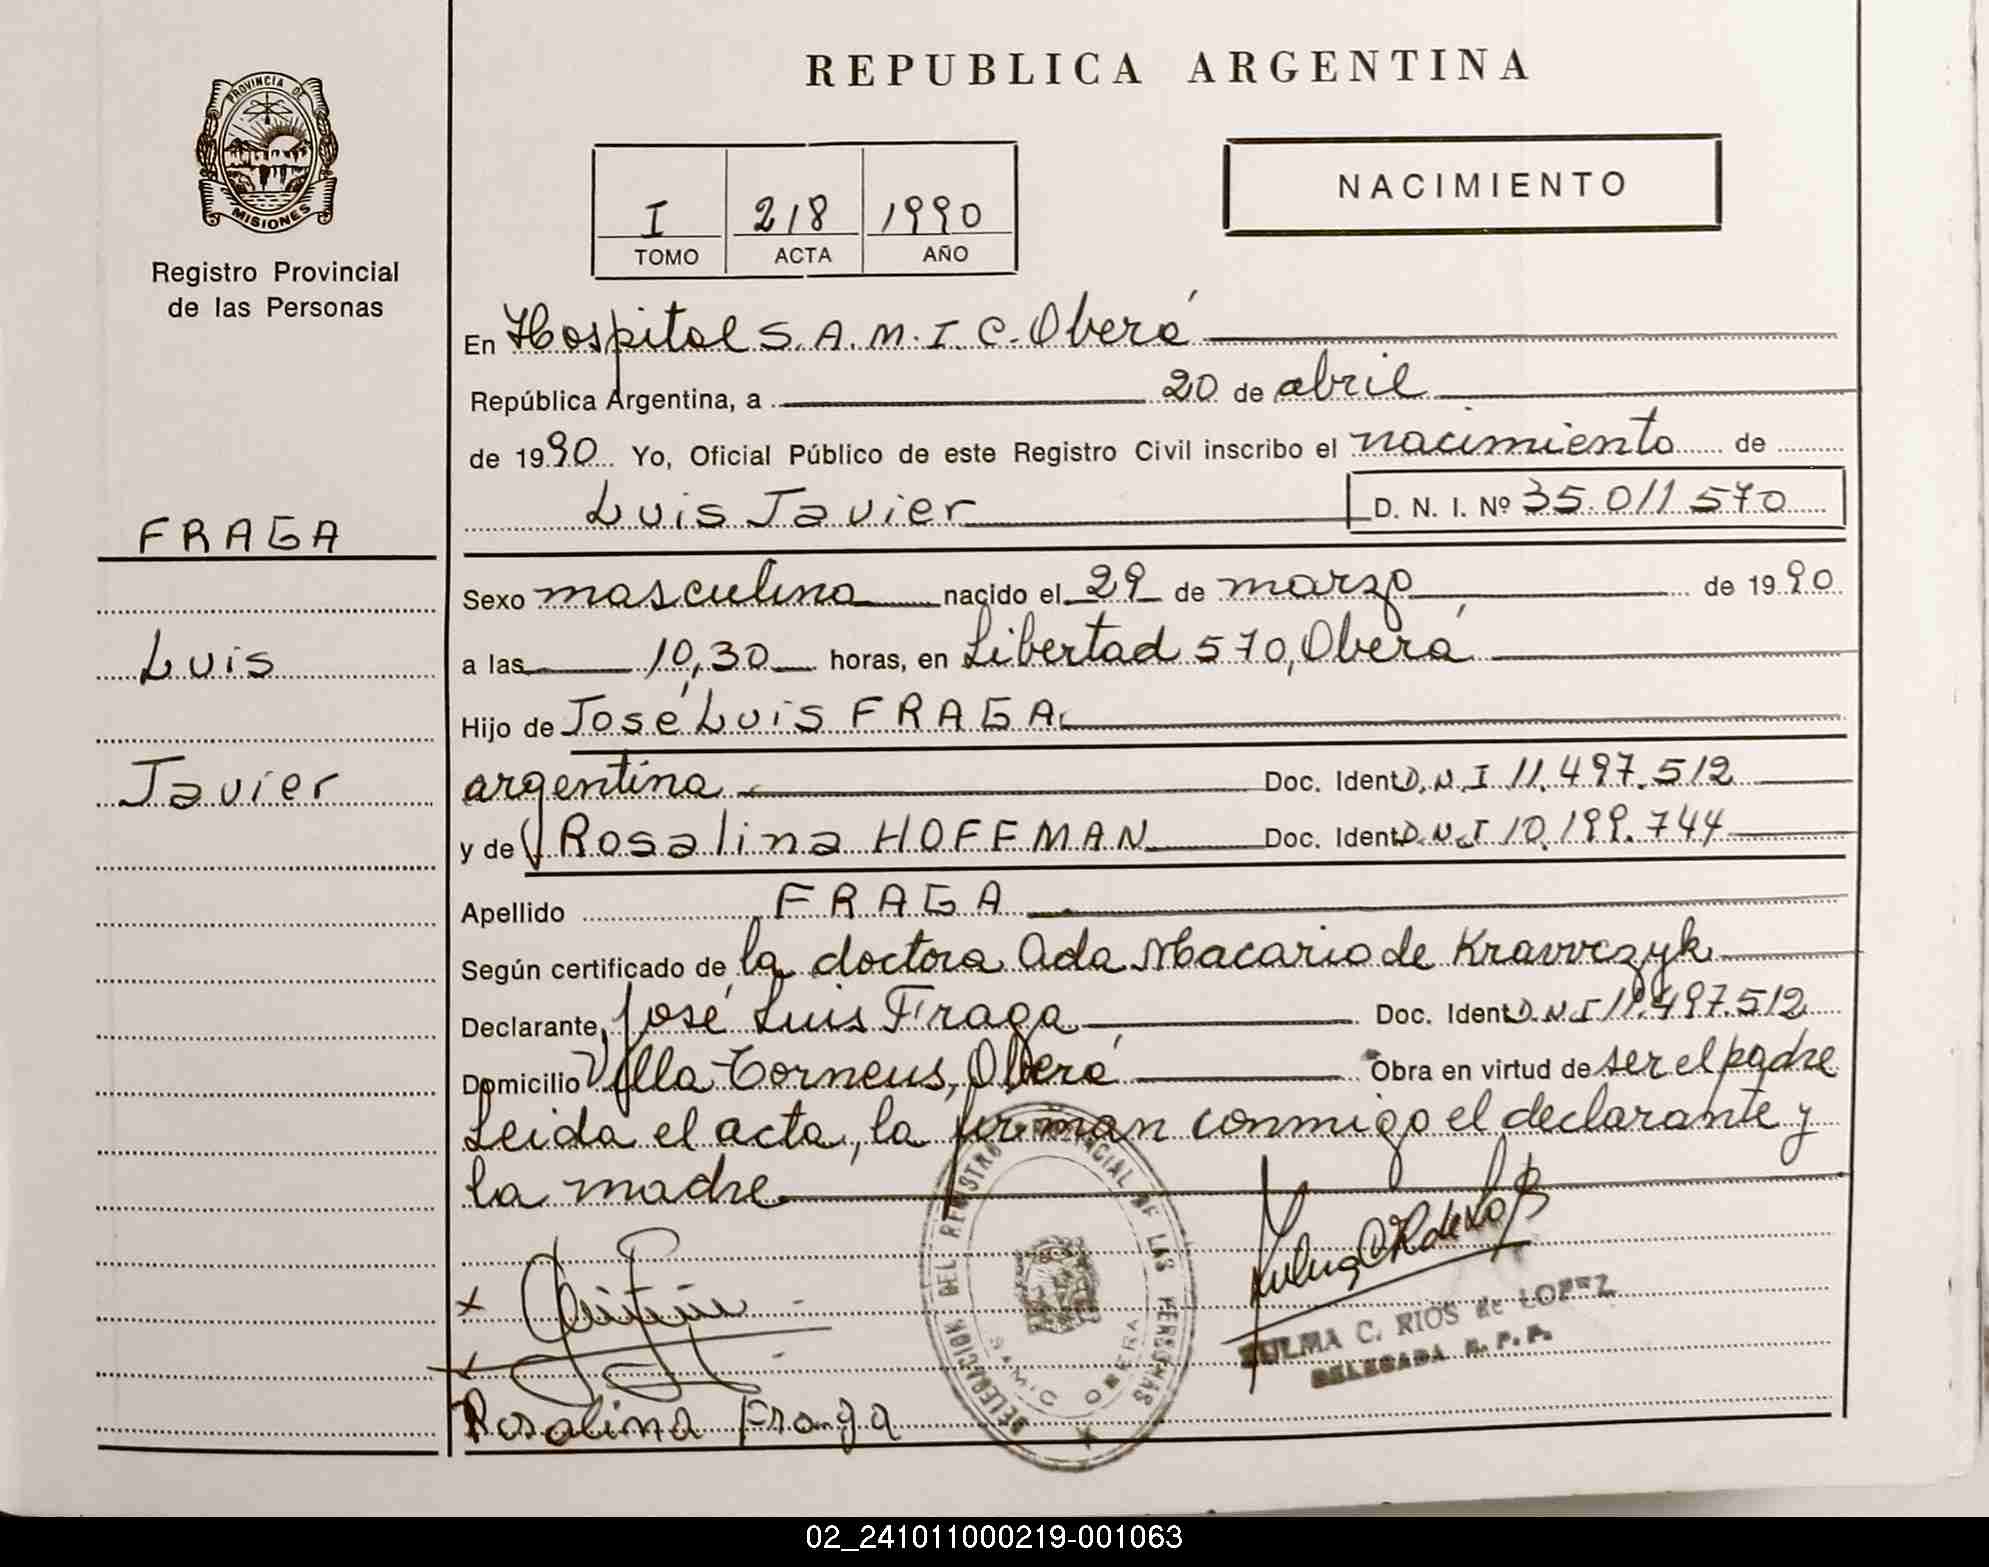 REPUBLICA ARGENTINA
PROVINCIA DE
MISIONES
Registro Provincial
de las Personas
NACIMIENTO
I 218 1990
TOMO ACTA AÑO
En Hospital S.A.M.I.C. Oberá
República Argentina, a 20 de abril
de 1990 Yo, Oficial Público de este Registro Civil inscribo el nacimiento de
Luis Javier D. N. I. Nº 35.011.570
FRAGA
Luis
Javier
Sexo masculino nacido el 29 de marzo de 1990
a las 10,30 horas, en Libertad 570, Oberá
Hijo de José Luis FRAGA
argentina Doc. Ident D.N.I 11.497.512
y de Rosalina HOFFMAN Doc. Ident D.N.I 10.199.744
Apellido FRAGA
Según certificado de la doctora Ada Macario de Kravvczyk
Declarante, José Luis Fraga Doc. Ident D.N.I 11.497.512
Domicilio Villa Torneus, Oberá Obra en virtud de ser el padre
Leida el acta, la firman conmigo el declarante y
la madre
DELEGACION DEL REGISTRO PROVINCIAL DE LAS PERSONAS
SAMIC OBERA
ZULMA C. RIOS de LOPEZ
DELEGADA R. P. P.
Rosalina Fraga
02_241011000219-001063